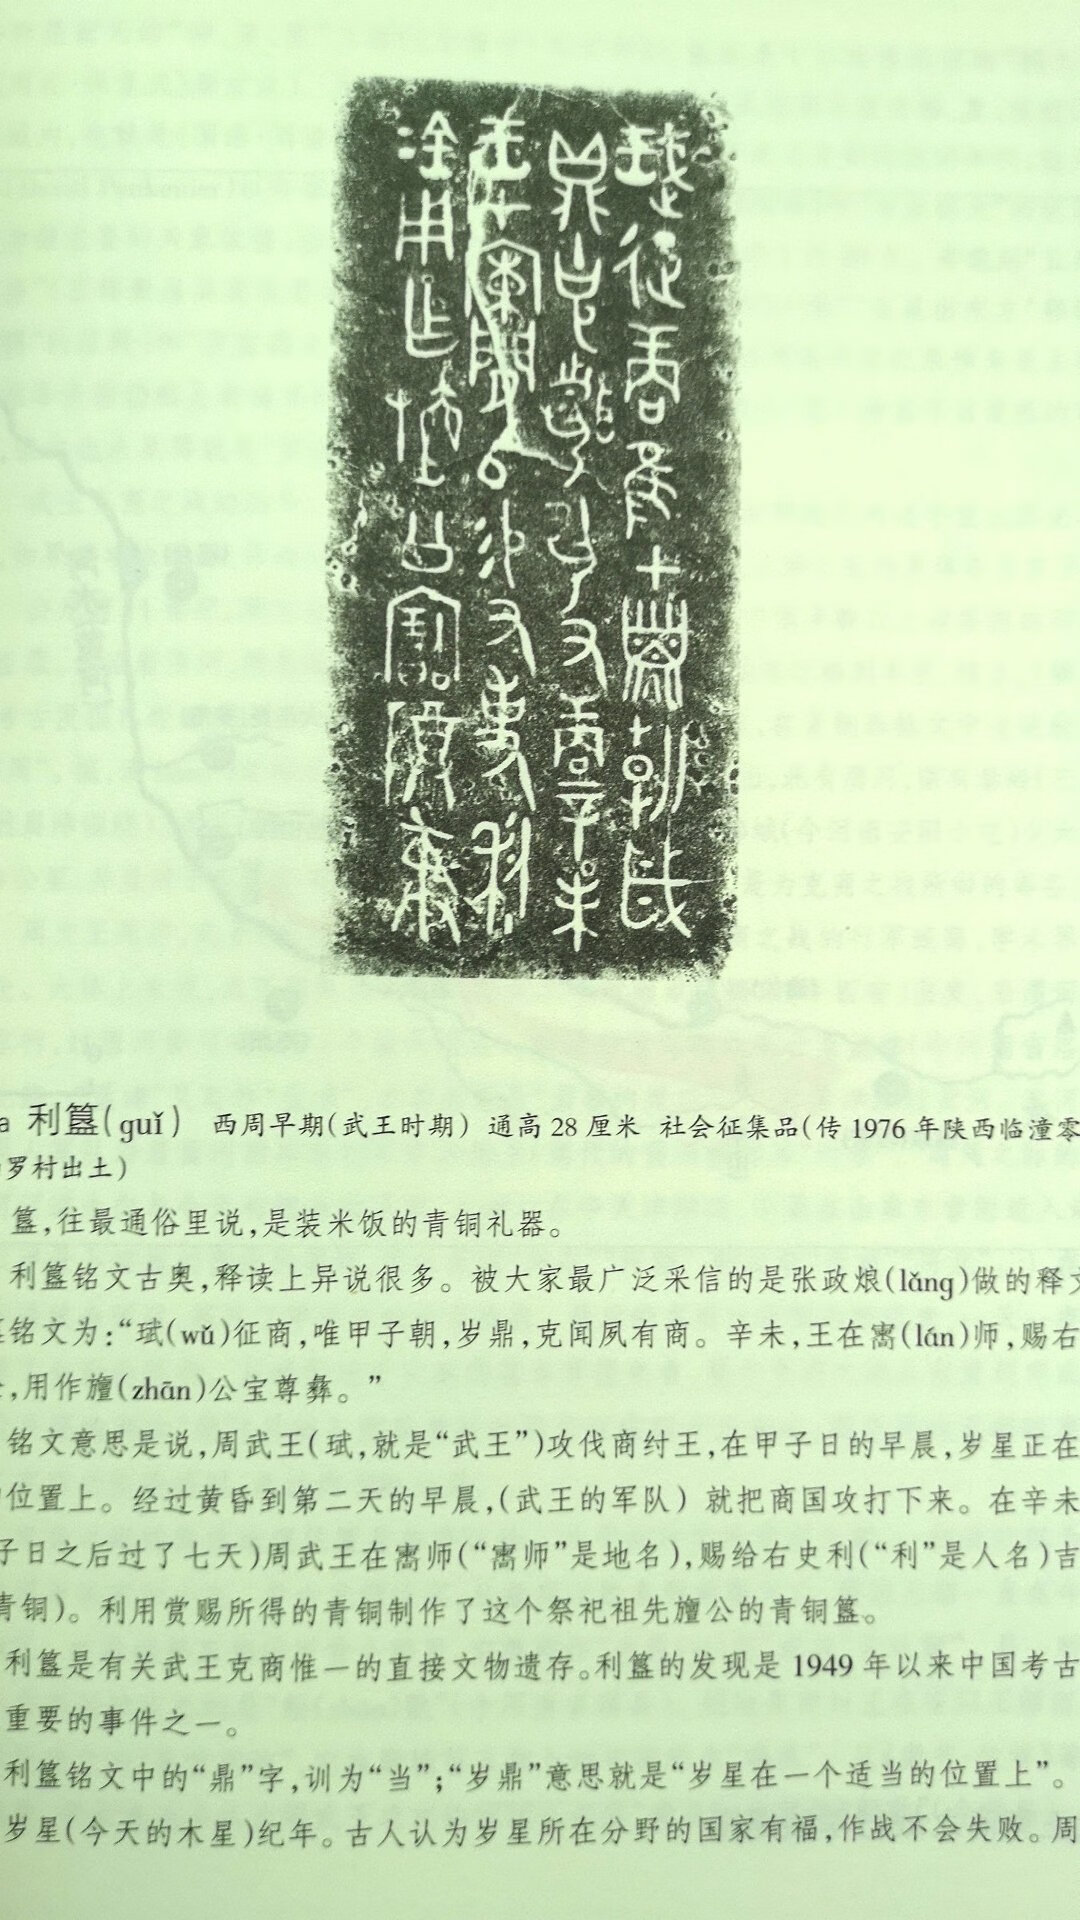 珷征商隹甲子朝歲
鼎克聞夙又商辛未
王才𠂤易又事利
金用乍旜公寶尊彝
a 利簋(guǐ) 西周早期(武王时期) 通高28厘米 社会征集品(传1976年陕西临潼零
罗村出土)
簋,往最通俗里说,是装米饭的青铜礼器。
利簋铭文古奥,释读上异说很多。被大家最广泛采信的是张政烺(lǎng)做的释文
铭文为:“珷(wǔ)征商,唯甲子朝,岁鼎,克闻夙有商。辛未,王在𬮿(lán)师,赐右
,用作旜(zhān)公宝尊彝。”
铭文意思是说,周武王(珷,就是“武王”)攻伐商纣王,在甲子日的早晨,岁星正在
位置上。经过黄昏到第二天的早晨,(武王的军队) 就把商国攻打下来。在辛未
子日之后过了七天)周武王在𬮿师(“𬮿师”是地名),赐给右史利(“利”是人名)吉
青铜)。利用赏赐所得的青铜制作了这个祭祀祖先旜公的青铜簋。
利簋是有关武王克商惟一的直接文物遗存。利簋的发现是1949年以来中国考古
重要的事件之一。
利簋铭文中的“鼎”字,训为“当”;“岁鼎”意思就是“岁星在一个适当的位置上”。
岁星(今天的木星)纪年。古人认为岁星所在分野的国家有福,作战不会失败。周